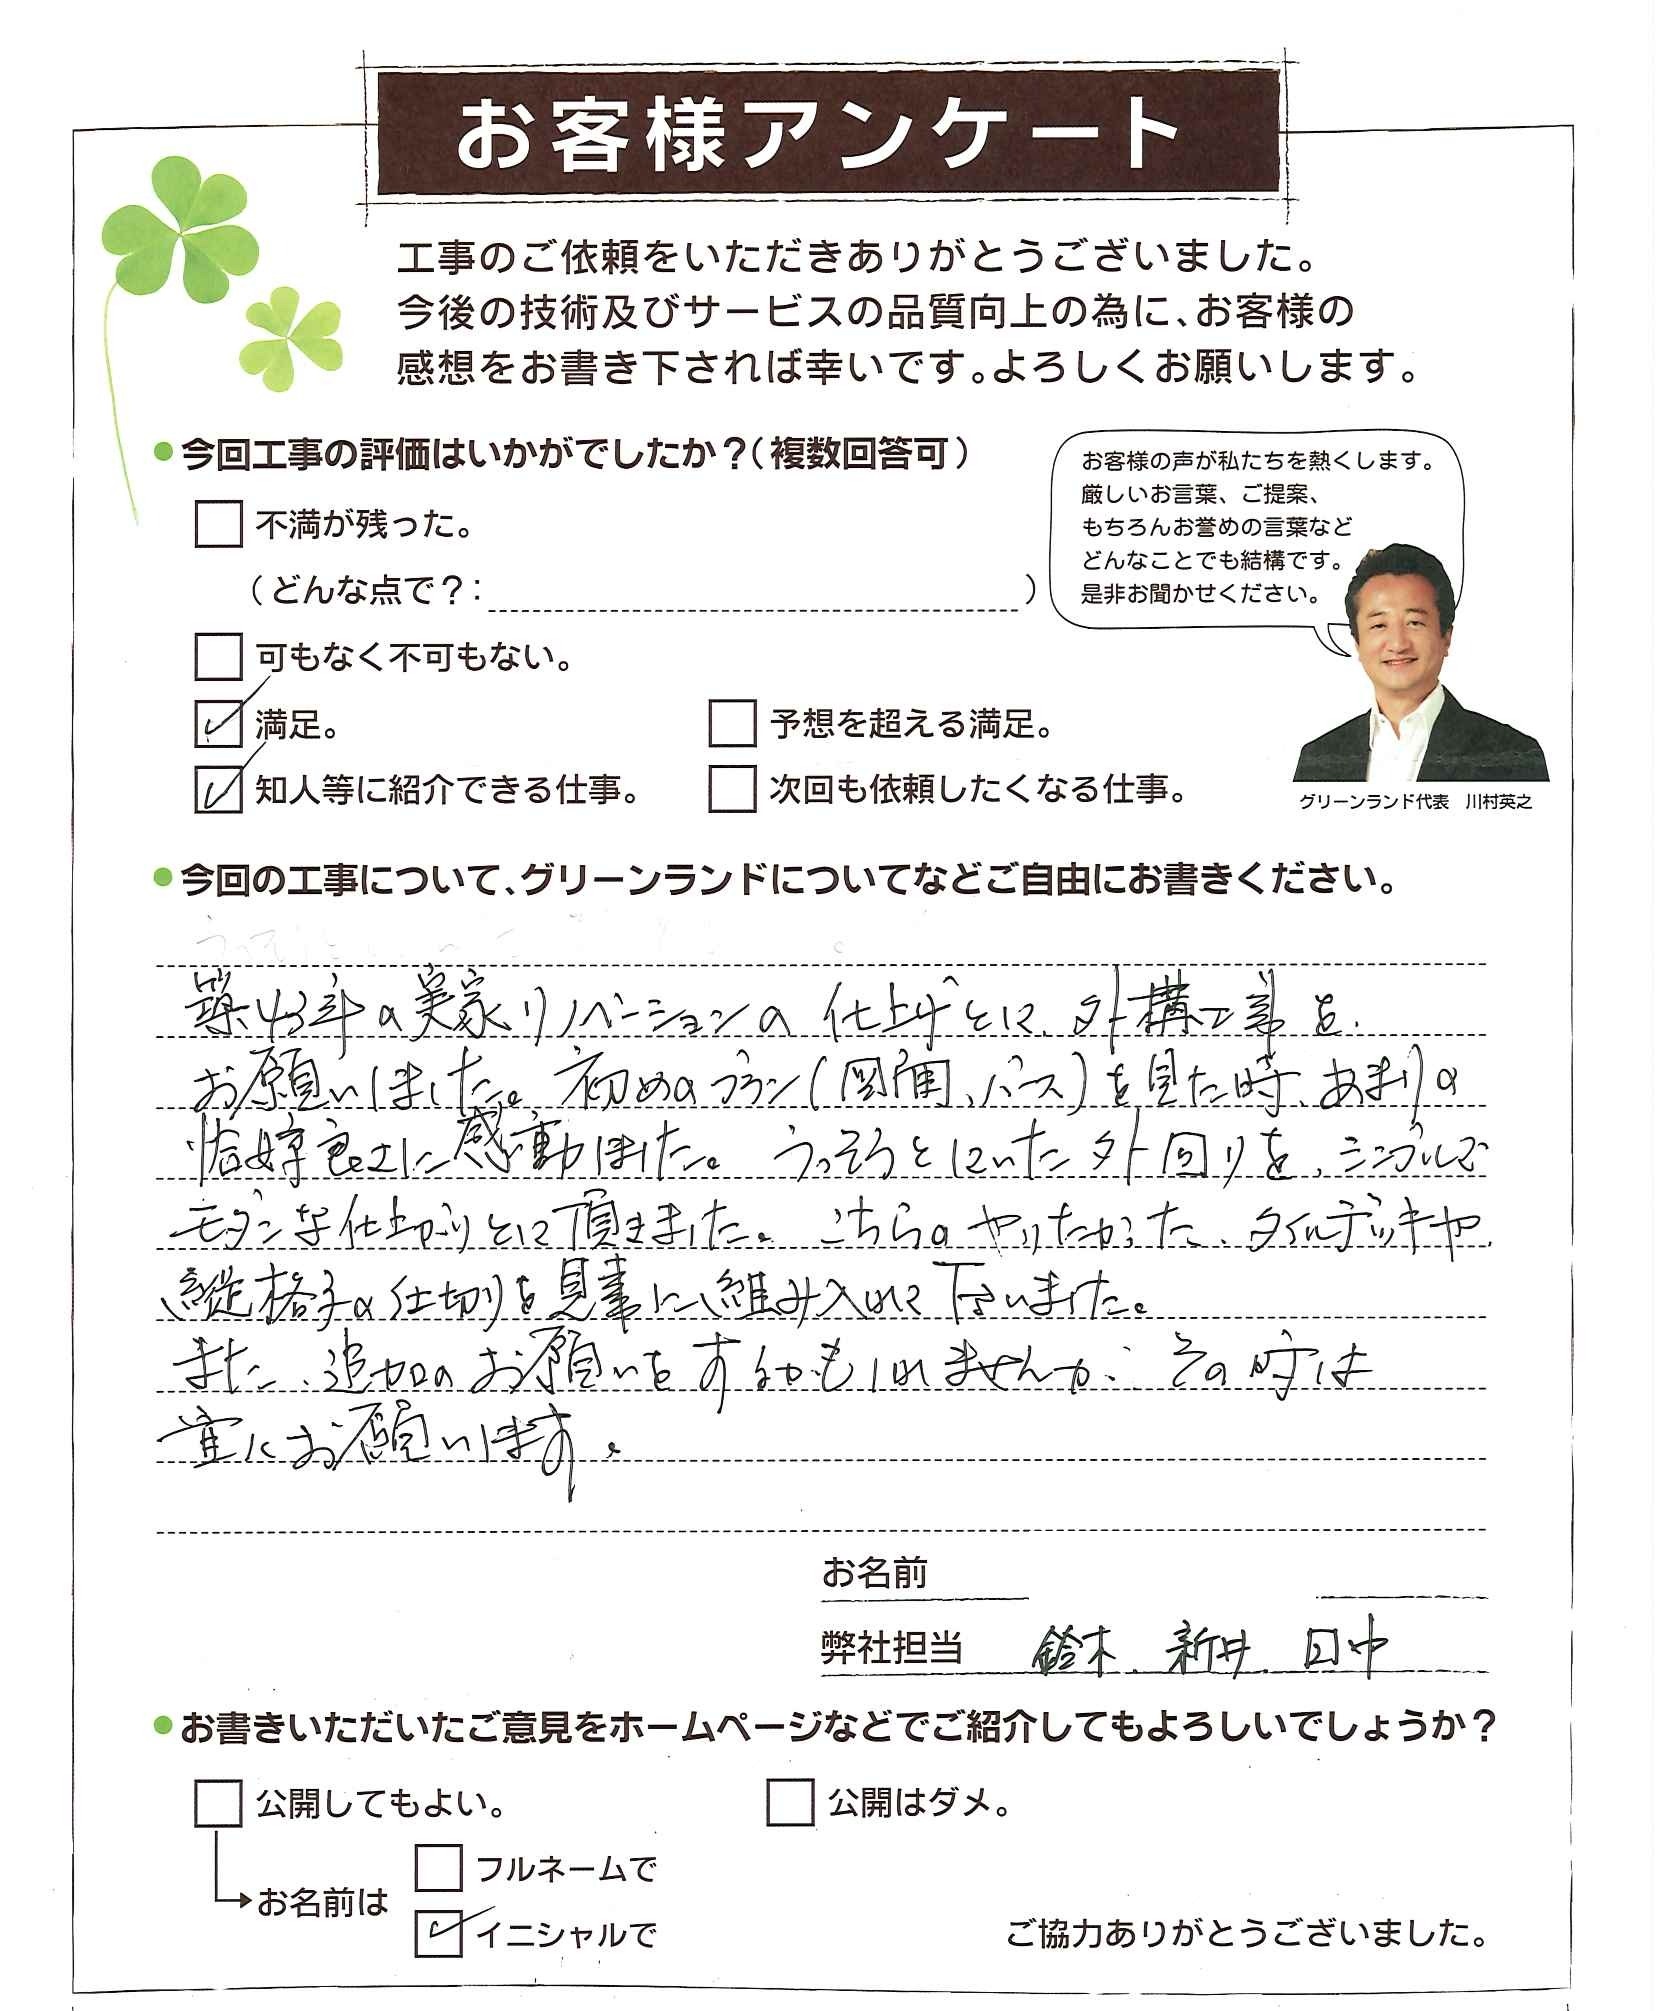 お客様アンケート
工事のご依頼をいただきありがとうございました。
今後の技術及びサービスの品質向上の為に、お客様の
感想をお書き下されば幸いです。よろしくお願いします。
今回工事の評価はいかがでしたか？（複数回答可）
不満が残った。
（どんな点で？：　）
可もなく不可もない。
満足。
予想を超える満足。
知人等に紹介できる仕事。
次回も依頼したくなる仕事。
お客様の声が私たちを熱くします。
厳しいお言葉、ご提案、
もちろんお誉めの言葉など
どんなことでも結構です。
是非お聞かせください。
グリーンランド代表　川村英之
今回の工事について、グリーンランドについてなどご自由にお書きください。
築43年の実家リノベーションの仕上げとして、外構工事を
お願いしました。初めのプラン(図面、パース)を見た時、あまりの
恰好良さに感動しました。うっそうとしていた外回りを、シンプルで
モダンな仕上がりとして頂きました。こちらのやりたかった、タイルデッキや
縦格子の仕切りを見事に組み入れて下さいました。
また、追加のお願いをするかもしれませんが、その時は
宜しくお願いします。
お名前
弊社担当　鈴木、新井、田中
お書きいただいたご意見をホームページなどでご紹介してもよろしいでしょうか？
公開してもよい。
公開はダメ。
お名前は
フルネームで
イニシャルで
ご協力ありがとうございました。